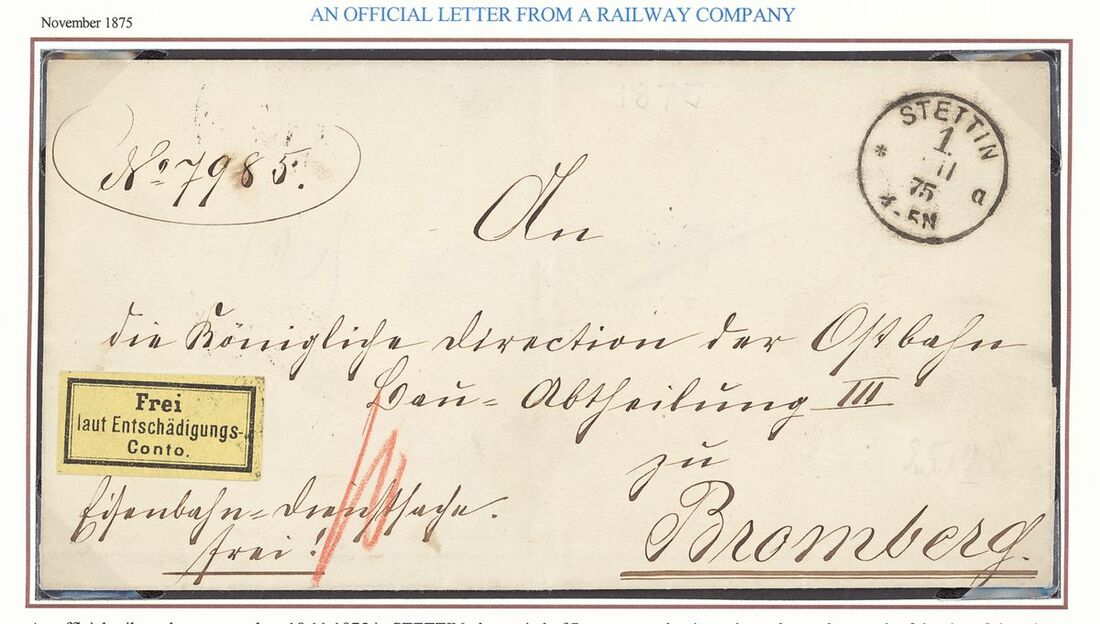 November 1875
AN OFFICIAL LETTER FROM A RAILWAY COMPANY
1875
STETTIN
1
11
75
4-5N
a
No 7985.
An
die Königliche Direction der Ostbahn
Bau-Abtheilung III
zu
Bromberg.
Frei
laut Entschädigungs-
Conto.
Eisenbahn-Dienstsache.
frei!